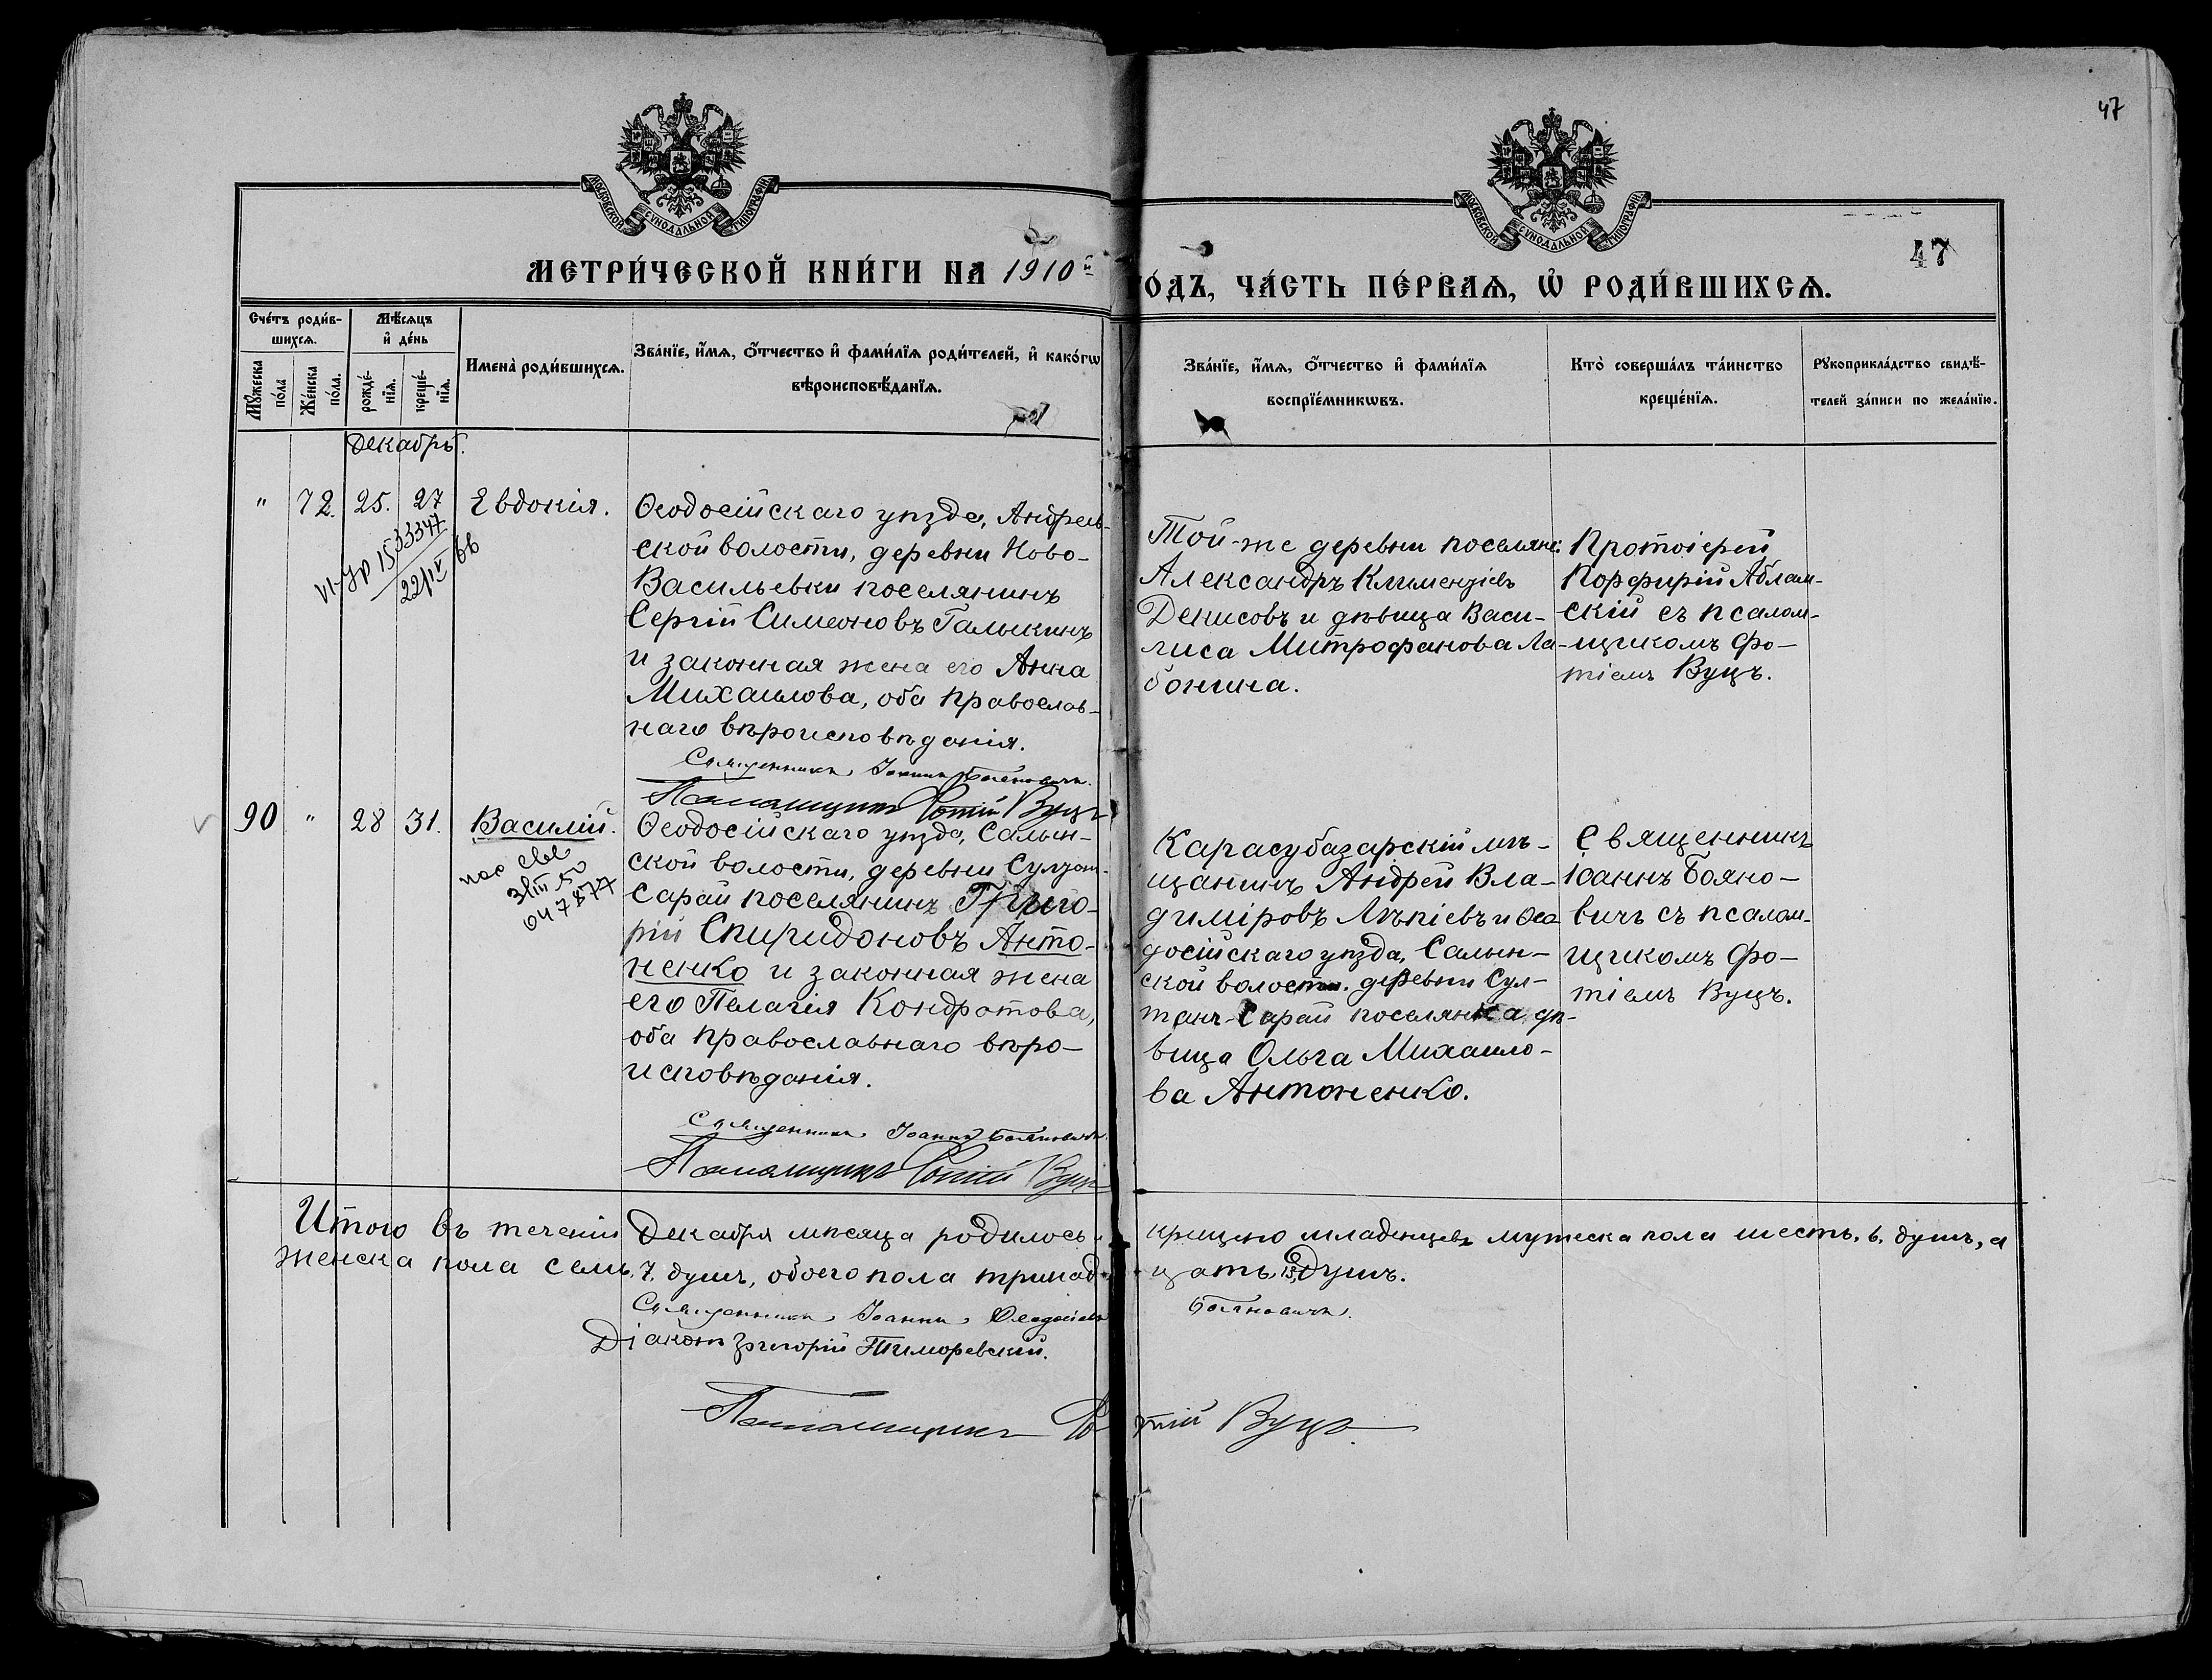 47
МОСКОВСКОЙ СѴНОДАЛЬНОЙ ТИПОГРАФІИ
МОСКОВСКОЙ СѴНОДАЛЬНОЙ ТИПОГРАФІИ
47
МЕТРИ́ЧЕСКОЙ КНИ́ГИ НА 1910й
ГО́ДЪ, ЧА́СТЬ ПЕ́РВАѦ, Ѡ҆ РОДИ́ВШИХСѦ.
Сче́тъ роди́в-
шихсѧ.
Мѣ́сѧцъ
и҆ де́нь
Мꙋ́жеска
по́ла
Же́нска
по́ла.
рожде́-
нїѧ.
креще́-
нїѧ.
Имена̀ роди́вшихсѧ.
Зва́нїе, и҆́мѧ, ѻ҆́тчество и҆ фами́лїѧ роди́телей, и҆ како́гѡ
вѣроисповѣ́данїѧ.
Зва́нїе, и҆́мѧ, ѻ҆́тчество и҆ фами́лїѧ
воспрїе́мникѡвъ.
Кто̀ соверша́лъ та́инство
креще́нїѧ.
Рꙋкоприкла́дство свидѣ́-
телей за́писи по жела́нїю.
Декабрь.
" 72. 25. 27 Евдокія.
Ѳеодосійскаго уѣзда, Андреев-
ской волости, деревни Ново-
Васильевки поселянинъ
Сергій Симеоновъ Галыкинъ
и законная жена его Анна
Михаилова, оба православ-
наго вѣроисповѣданія.
Священникъ Іоаннъ Бояновичъ.
Псаломщикъ Фотій Вуцъ
Той-же деревни поселяне:
Александръ Климентіевъ
Денисовъ и дѣвица Васи-
лиса Митрофанова Ла-
бонина.
Протоіерей
Порфирій Аблам-
скій съ псалом-
щикомъ Фо-
тіемъ Вуцъ.
VI-УР 1533347
22/IV 66
90 " 28 31. Василій.
047877
Ѳеодосійскаго уѣзда, Салын-
ской волости, деревни Султан-
Сарай поселянинъ Григо-
рій Спиридоновъ Анто-
ненко и законная жена
его Пелагія Кондратова,
оба православнаго вѣро-
исповѣданія.
Священникъ Іоаннъ Бояновичъ.
Псаломщикъ Фотій Вуцъ
Карасубазарскій мѣ-
щанинъ Андрей Вла-
диміровъ и Ѳео-
досійскаго уѣзда, Салын-
ской волости. деревни Сул-
танъ-Сарай поселянка дѣ-
вица Ольга Михаило-
ва Антоненко.
Священникъ
Іоаннъ Бояно-
вичъ съ псалом-
щикомъ Фо-
тіемъ Вуцъ.
Итого въ теченіи Декабря мѣсяца родилось крещено младенцевъ мужеска пола шесть, 6. душъ, а
женска пола семь, 7. душъ, обоего пола тринадцать, 13, душъ.
Священникъ Іоаннъ Ѳеодосіевъ Бояновичъ.
Діаконъ Григорій Тиморевскій.
Псаломщикъ Фотій Вуцъ.